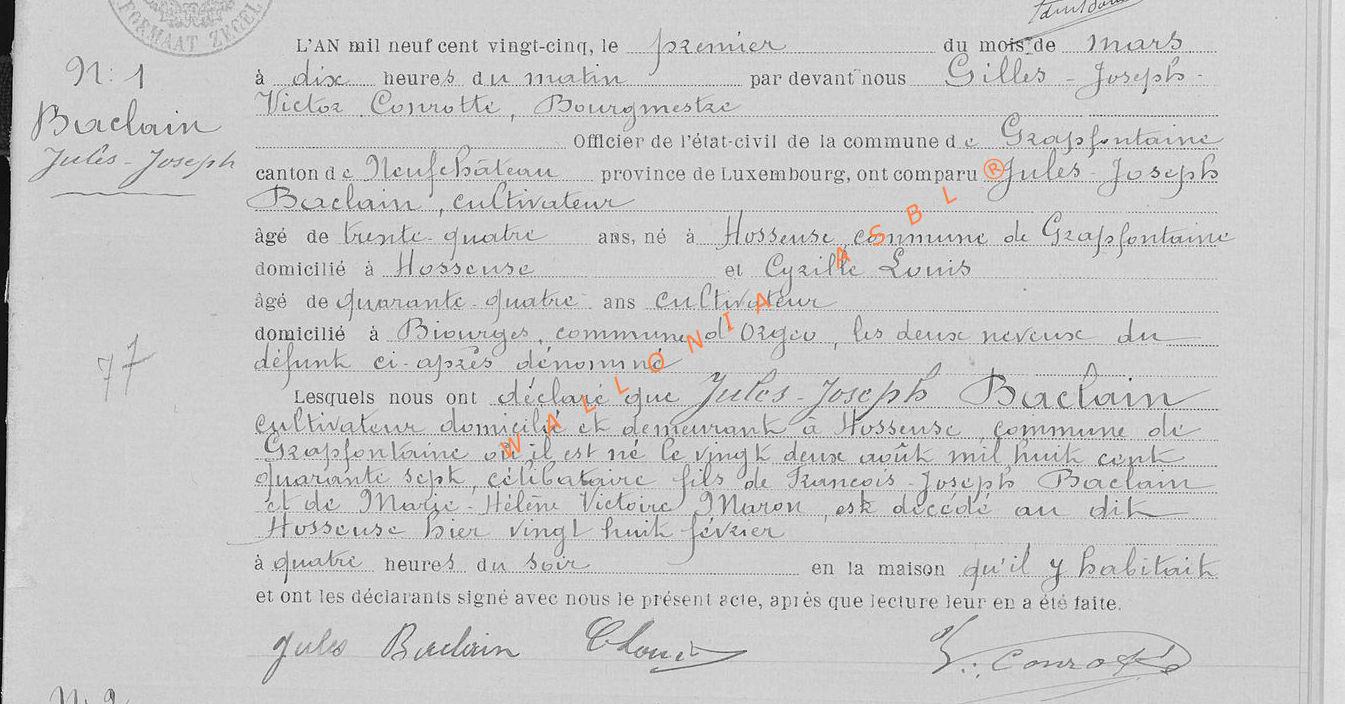 FORMAAT ZEGEL
L'AN mil neuf cent vingt-cinq, le premier du mois de mars
N: 1
à dix heures du matin par devant nous Gilles - Joseph -
Victor Conrotte, Bourgmestre
Baclain
Officier de l'état-civil de la commune de Grapfontaine
Jules - Joseph
canton de Neufchâteau province de Luxembourg, ont comparu Jules - Joseph
Baclain, cultivateur
âgé de trente-quatre ans, né à Hosseuse, commune de Grapfontaine
domicilié à Hosseuse et Cyrille Louis
âgé de quarante-quatre ans cultivateur
domicilié à Biourges, commune d'Orgeo, les deux neveux du
défunt ci-après dénommé
77
Lesquels nous ont déclaré que Jules-Joseph Baclain
cultivateur domicilié et demeurant à Hosseuse, commune de
Grapfontaine où il est né le vingt deux août mil huit cent
quarante sept, célibataire fils de François-Joseph Baclain
et de Marie-Hélène Victoire Maron, est décédé au dit
Hosseuse hier vingt huit février
à quatre heures du soir en la maison qu'il y habitait
et ont les déclarants signé avec nous le présent acte, après que lecture leur en a été faite.
Jules Baclain CLouis V. Conrotte
N: 2
WALLONIA ASBL ®